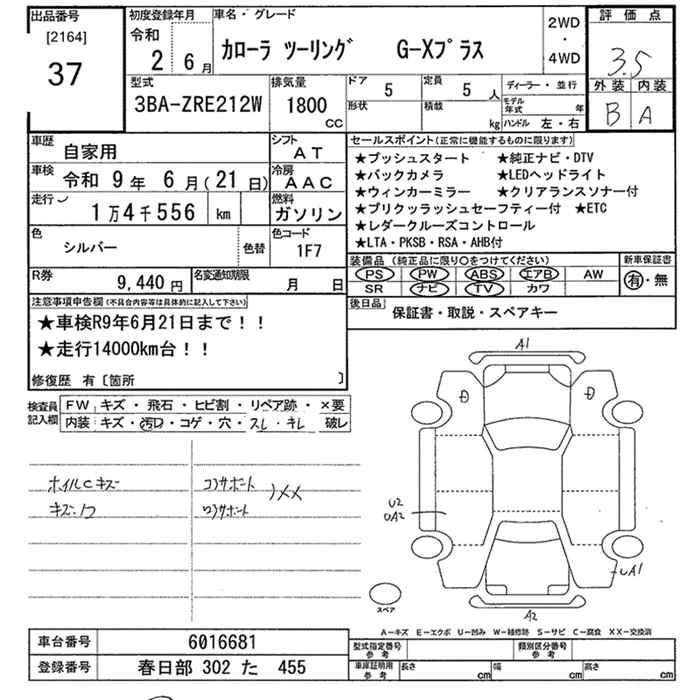 出品番号
[2164]
37
初度登録年月
令和
2 6月
車名・グレード
カローラ ツーリング G-Xプラス
2WD
・
4WD
評価点
3.5
外装 内装
B A
型式
3BA-ZRE212W
排気量
1800
CC
ドア
5
定員
5
人
形状
積載
kg
ディーラー・並行
モデル年式
年
ハンドル 左・右
車歴
自家用
シフト
AT
車検
令和 9年 6月(21日)
冷房
AAC
走行
1万4千556 km
燃料
ガソリン
色
シルバー
色替
色コード
1F7
R券
9,440円
名変通知期限
月 日
セールスポイント(正常に機能するものに限ります)
★プッシュスタート ★純正ナビ・DTV
★バックカメラ ★LEDヘッドライト
★ウィンカーミラー ★クリアランスソナー付
★プリクッラッシュセーフティー付 ★ETC
★レダークルーズコントロール
★LTA・PKSB・RSA・AHB付
装備品 (純正品に限り○をつけてください)
PS PW ABS エアB AW
SR ナビ TV カワ
新車保証書
有・無
後日品
保証書・取説・スペアキー
注意事項申告欄(不具合内容等は具体的に記入して下さい)
★車検R9年6月21日まで！！
★走行14000km台！！
修復歴 有〔箇所 〕
検査員
記入欄
FW キズ・飛石・ヒビ割・リペア跡・×要
内装 キズ・汚れ・コゲ・穴・スレ・キレ 破レ
ホイルCキズ
コアサポート
××
A1
U2
UA2
UA1
A2
スペア
A-キズ E-エクボ U-凹み W-補修跡 S-サビ C-腐食 XX-交換済
車台番号 6016681
登録番号 春日部 302 た 455
型式指定番号
参考
類別区分番号
参考
車庫証明用
参考
長さ cm 幅 cm 高さ cm